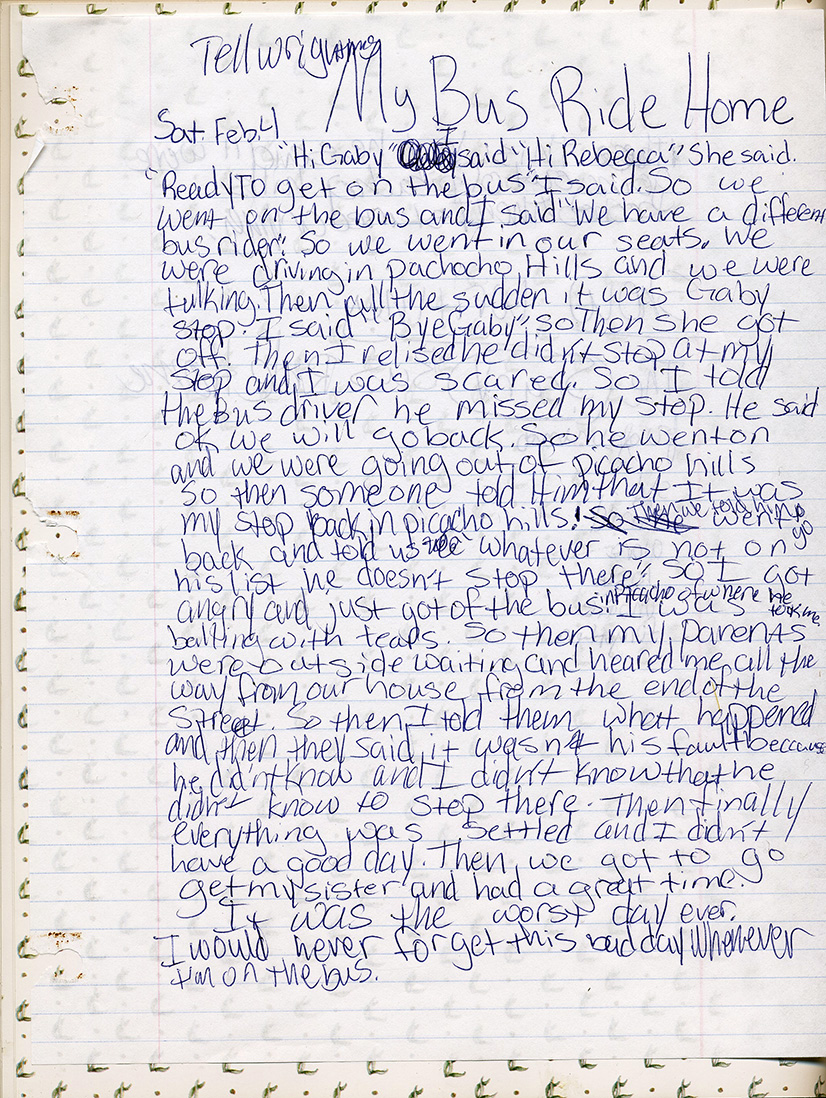 My Bus Ride Home
Sat. Feb. 4
"Hi Gaby" I said "Hi Rebecca" She said.
"Ready To get on the bus" I said. So we
went on the bus and I said "We have a different
bus rider". So we went in our seats. We
were driving in pachocho Hills and we were
tulking. Then all the sudden it was Gaby
stop. I said "Bye Gaby", so Then she got
off. Then I relised he didn't stop at my
stop and I was scared. So I told
the bus driver he missed my stop. He said
ok we will go back. So he went on
and we were going out of picacho hills
So then someone told Him that It was
my stop back in picacho hills. Then we told him to go
went
back and told us whatever is not on
his list he doesn't stop there". So I got
angry and just got of the bus in Picacho of where he took me. I was
balting with tears. So then my parents
were outside waiting and heared me all the
way from our house from the end of the
street. So then I told them what happened
and then they said it wasn't his fault beccause
he did'nt know and I didn't know that he
didn't know to stop there. Then finally
everything was settled and I didn't
have a good day. Then we got to go
get my sister and had a great time.
It was the worst day ever.
I would never forget this bad day whenever
I'm on the bus.